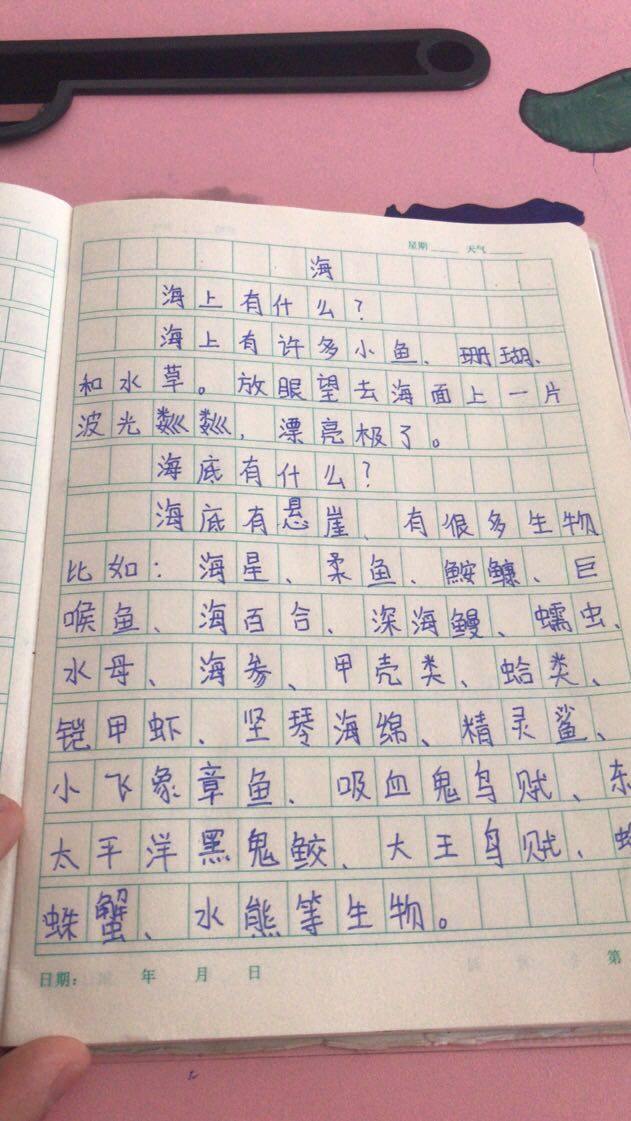 星期 天气
海
海上有什么?
海上有许多小鱼、珊瑚、
和水草。放眼望去海面上一片
波光粼粼,漂亮极了。
海底有什么?
海底有悬崖、有很多生物
比如:海星、柔鱼、鮟鱇、巨
喉鱼、海百合、深海鳗、蠕虫、
水母、海参、甲壳类、蛤类、
铠甲虾、坚琴海绵、精灵鲨、
小飞象章鱼、吸血鬼鸟贼、东
太平洋黑鬼鲛、大王鸟贼、
蛛蟹、水熊等生物。
日期: 年 月 日 第